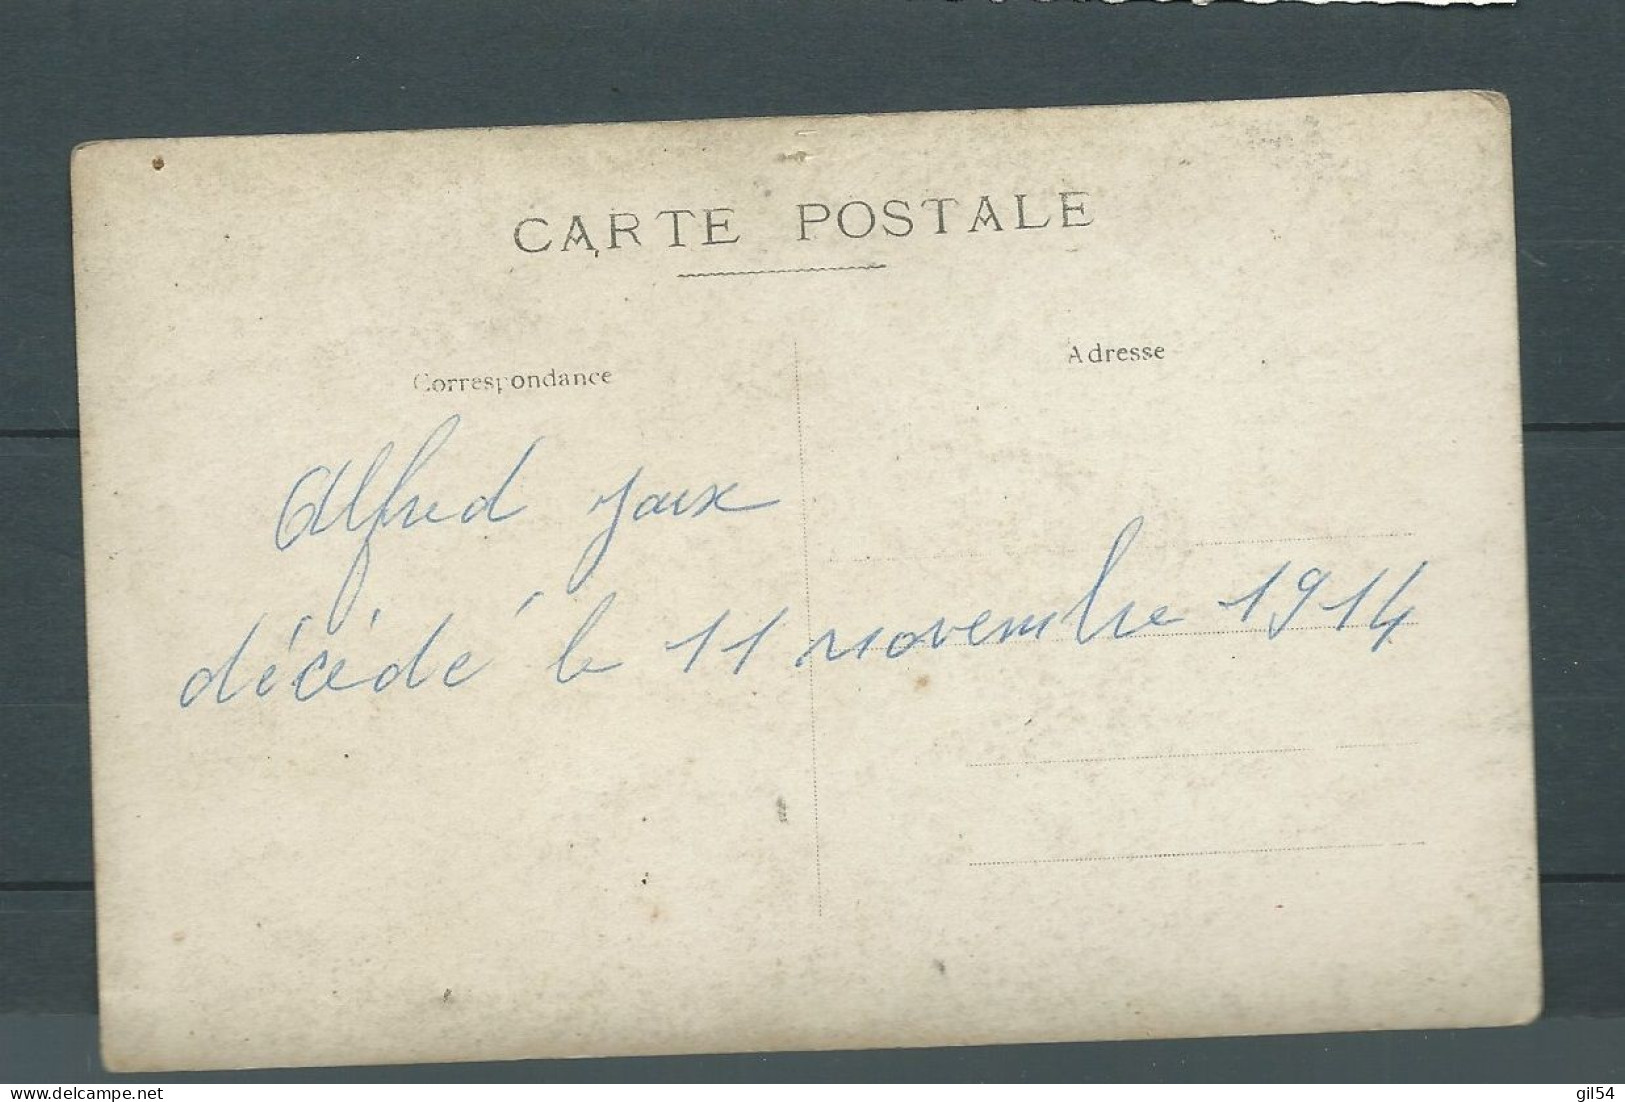 CARTE POSTALE
Correspondance
Adresse
Alfred Jaux
décédé le 11 novembre 1914
delcampe.net
gil54